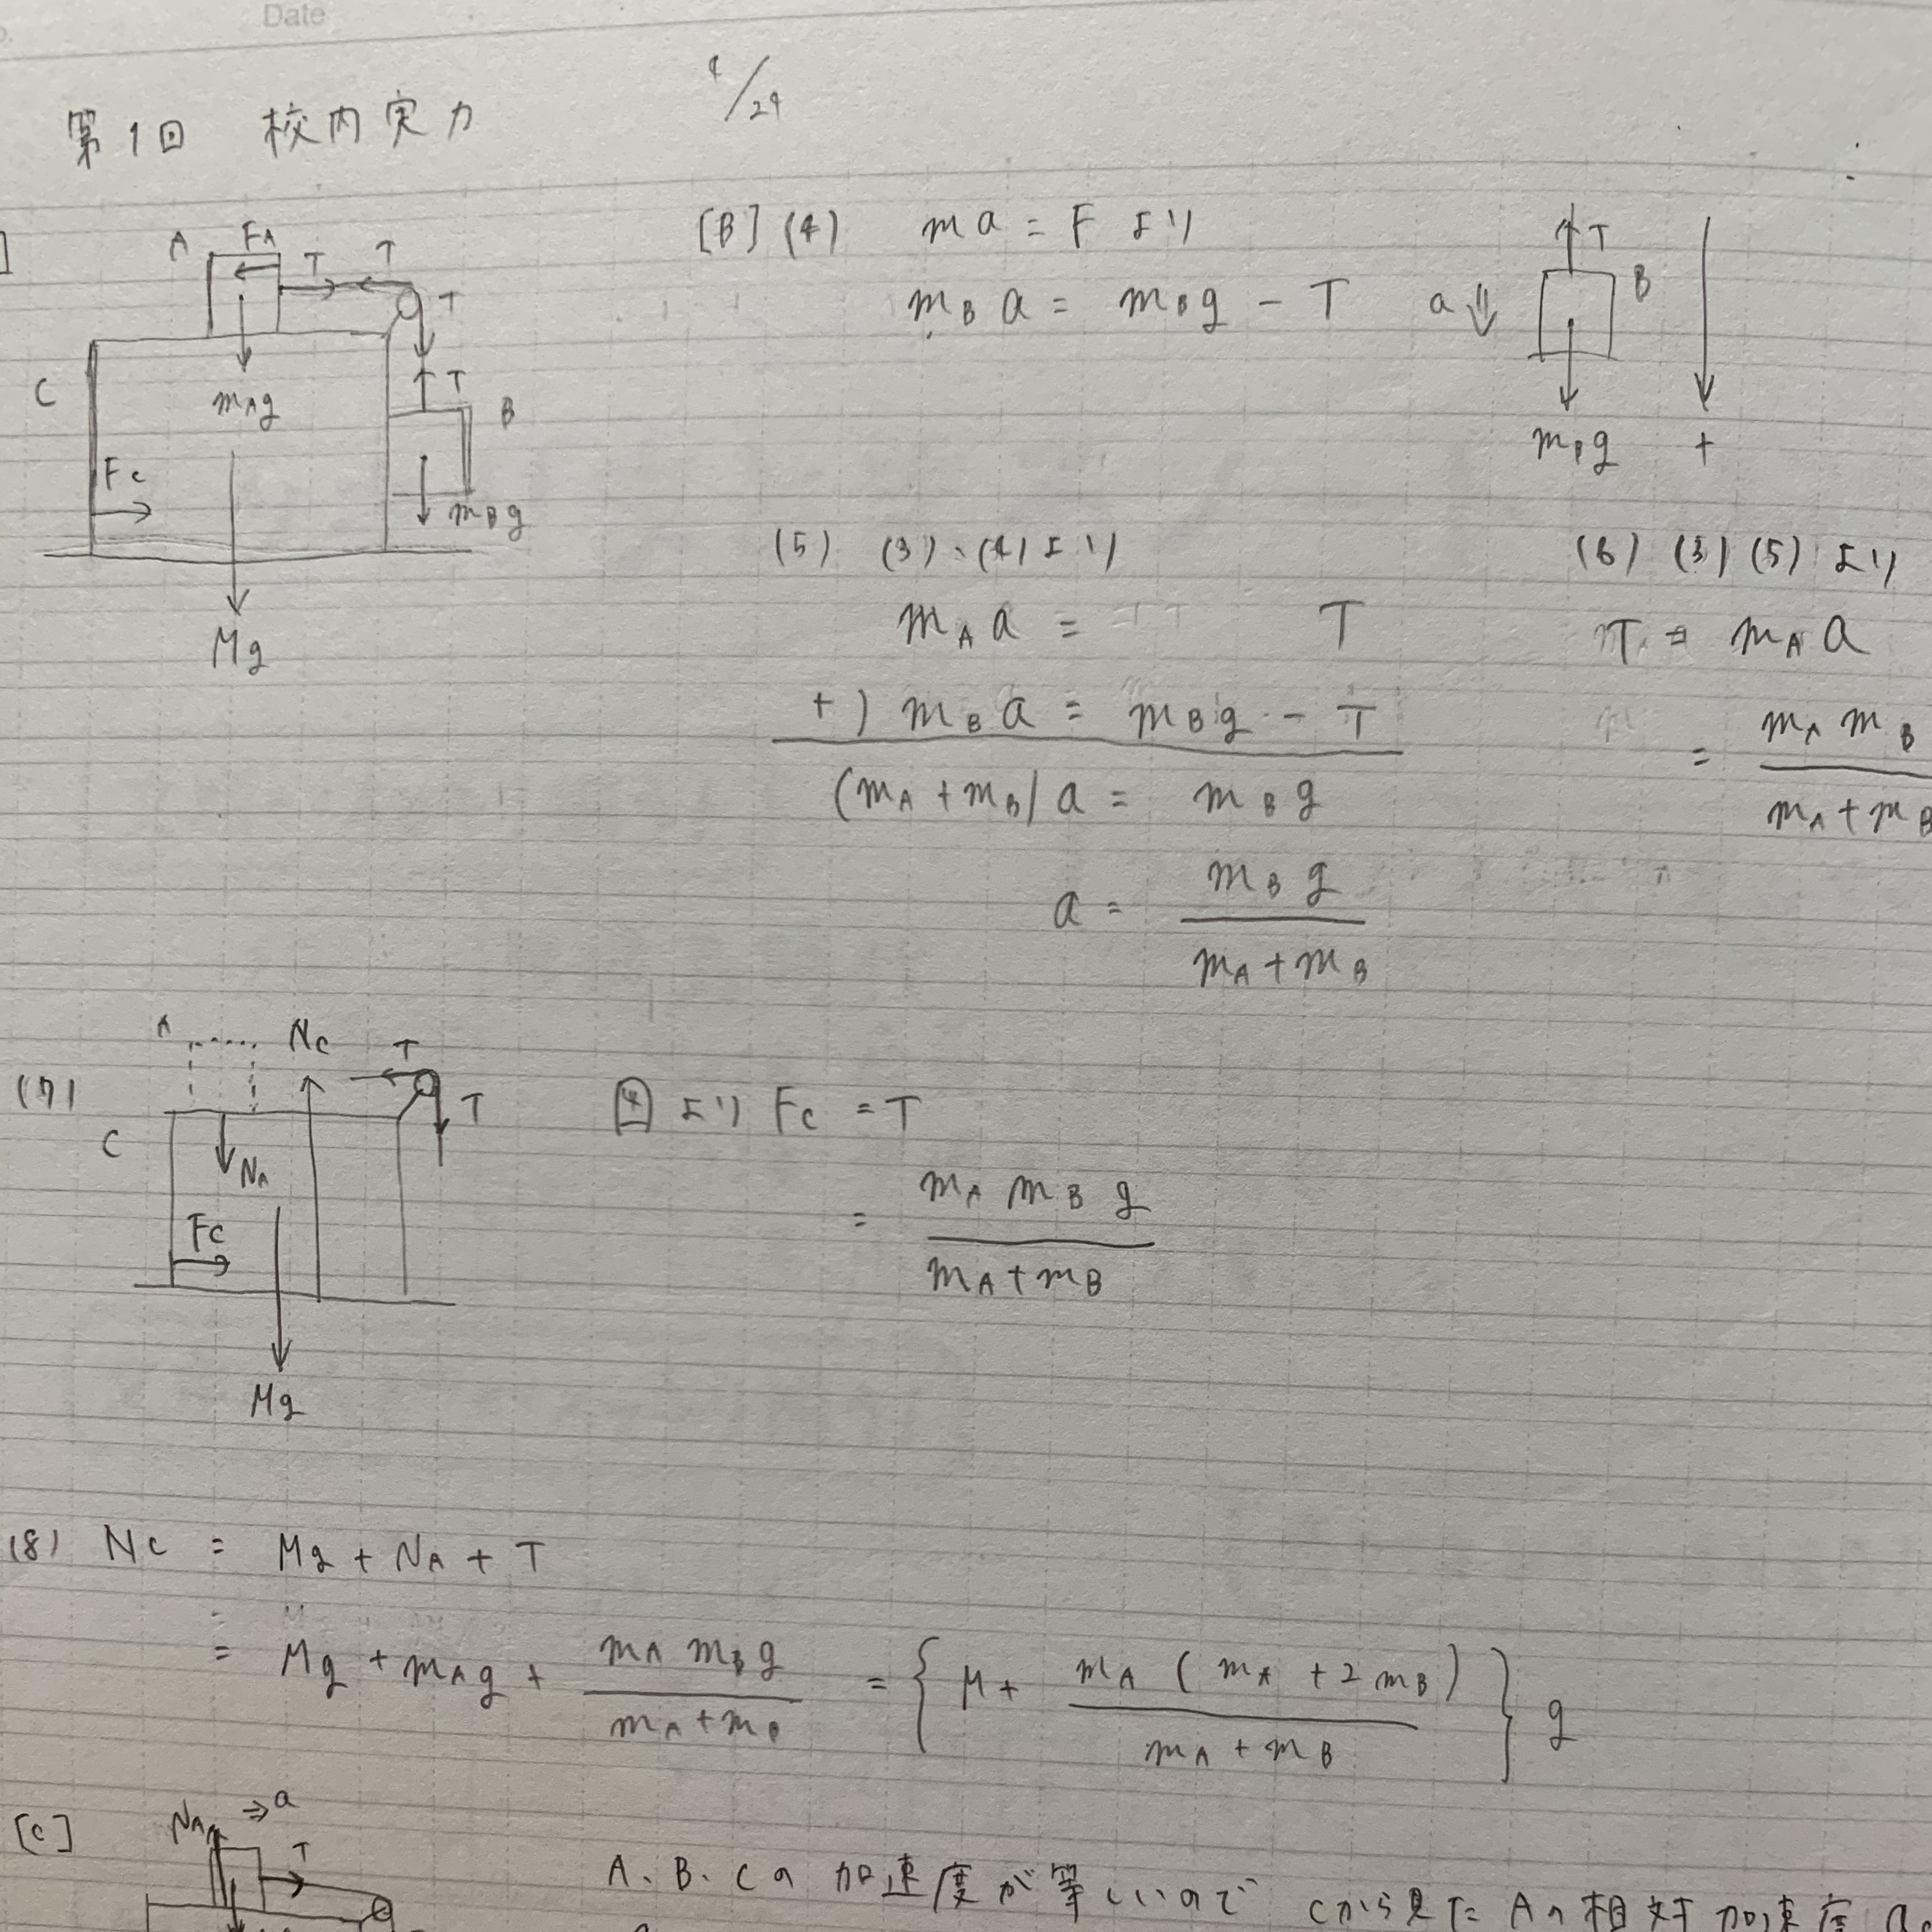 Date
第1回 校内実力 4/24
[B] (4) ma = F より
m_B a = m_B g - T
A F_A T T T
C m_A g T B
F_C m_B g
Mg
T B
a
m_B g +
(5) (3)、(4)より
m_A a = T
+) m_B a = m_B g - T
(m_A + m_B) a = m_B g
a = m_B g / (m_A + m_B)
(6) (3) (5) より
T = m_A a
= m_A m_B / (m_A + m_B
(7) A N_C T T
C N_A
F_C
Mg
図より F_C = T
= m_A m_B g / (m_A + m_B)
(8) N_C = Mg + N_A + T
= Mg + m_A g + m_A m_B g / (m_A + m_B) = { M + m_A ( m_A + 2 m_B ) / (m_A + m_B) } g
[C] N_A ⇒ a T
A、B、Cの加速度が等しいので Cから見た Aの相対加速度